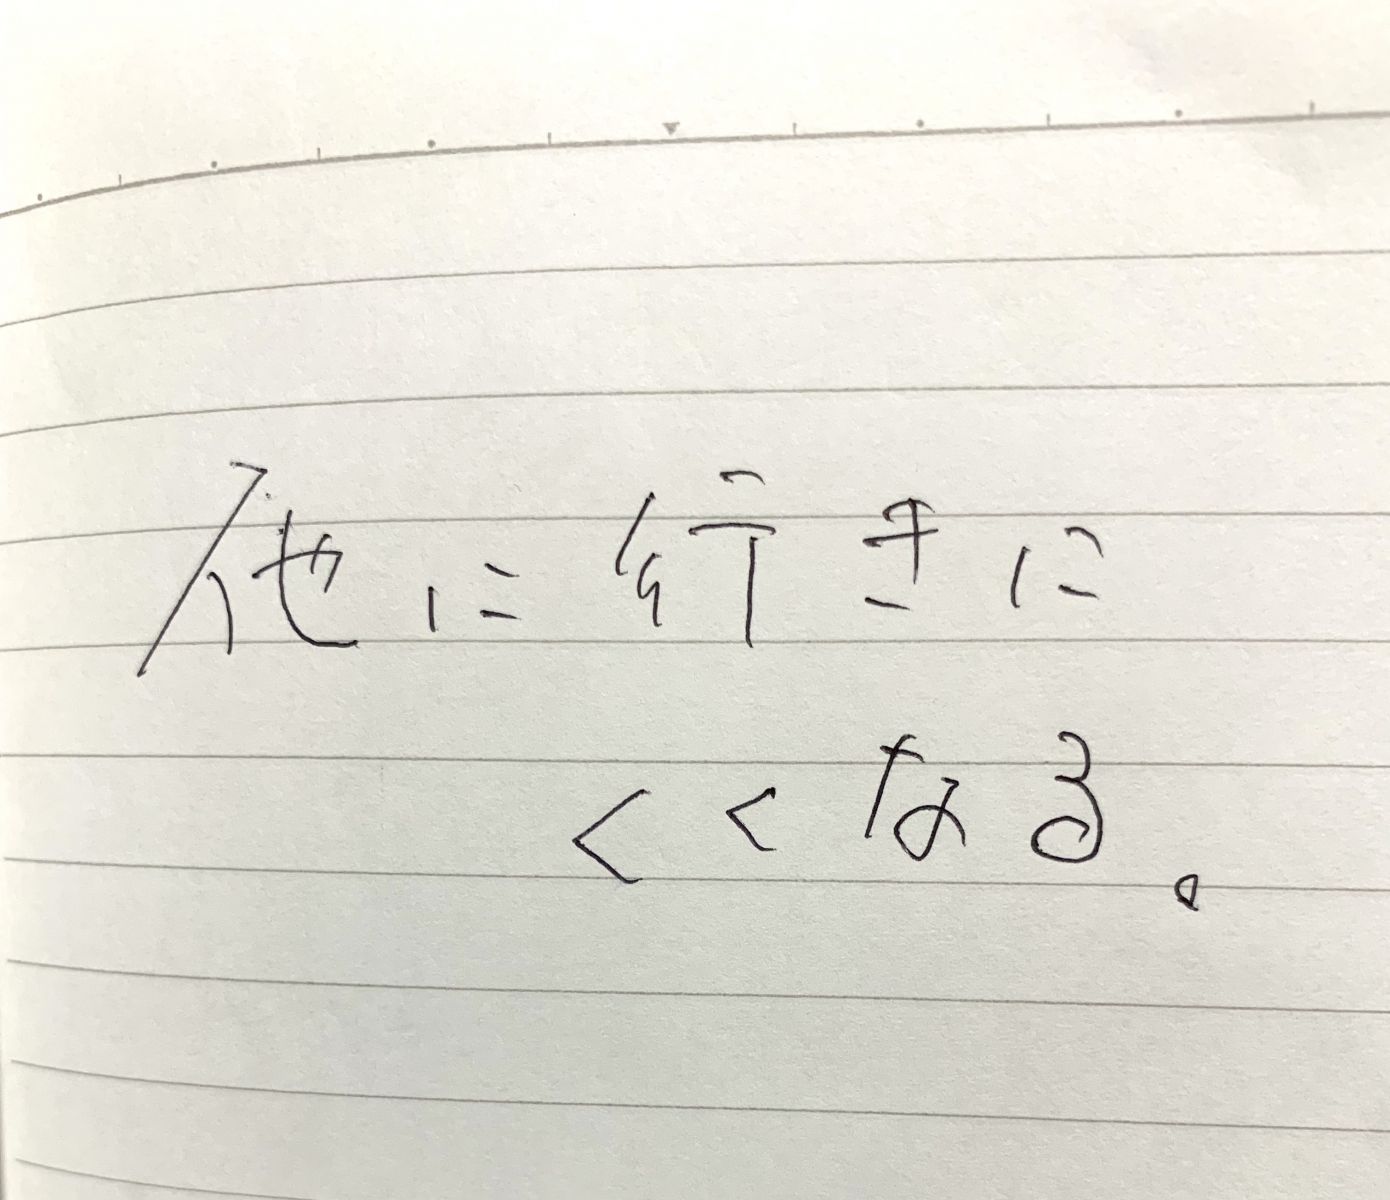 他に行きに
くくなる。